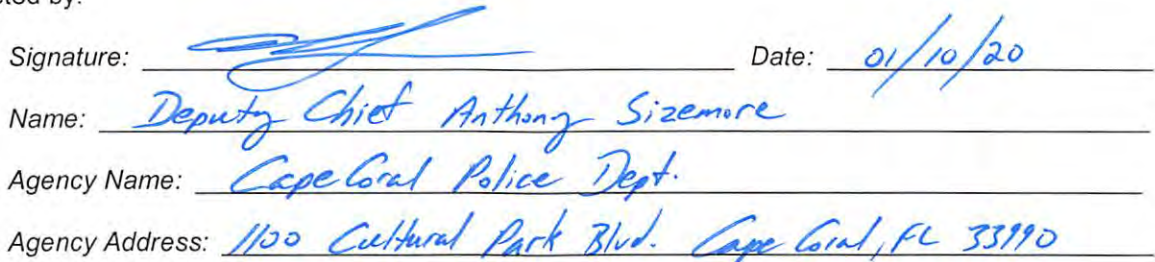 Signature: Date: 01/10/20
Name: Deputy Chief Anthony Sizemore
Agency Name: Cape Coral Police Dept.
Agency Address: 1100 Cultural Park Blvd. Cape Coral, FL 33990